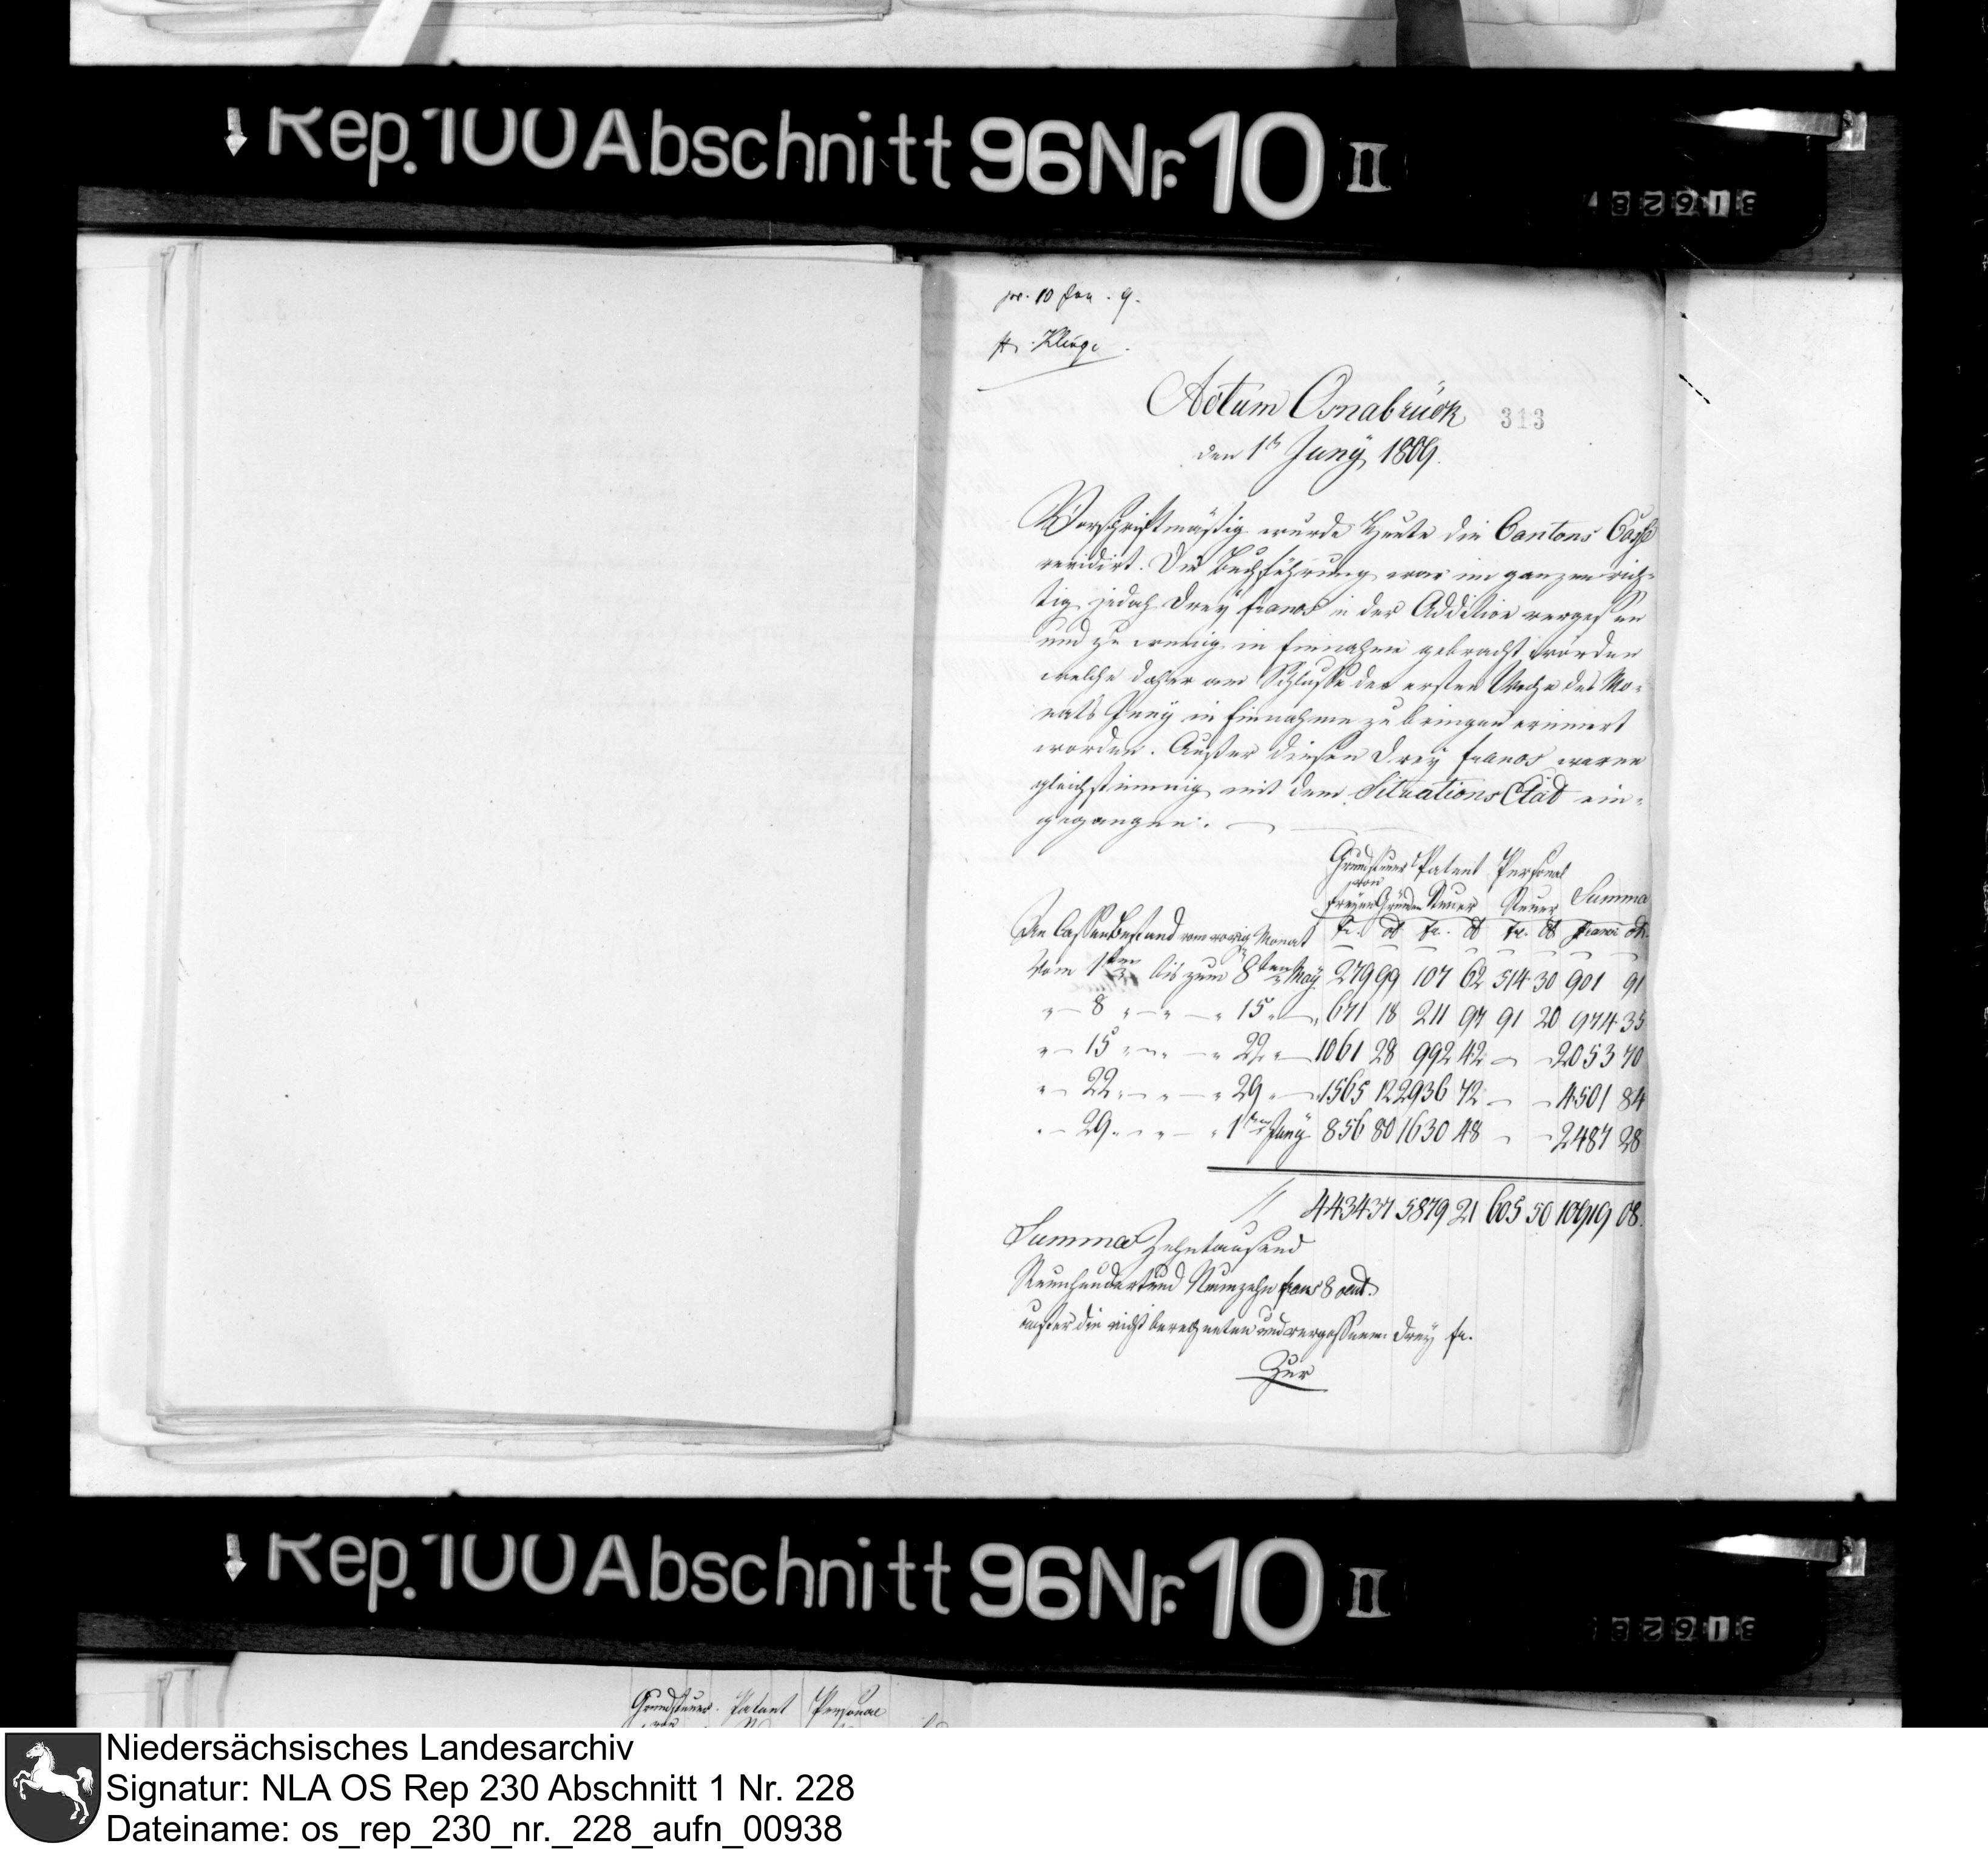 Rep. 100 Abschnitt 96 Nr. 10 II
31628
pr. 10 Jun. 9.
H. Kluge
Actum Osnabrück
313
den 1t Juny 1809.
Vorschriftmäßig wurde Heute die Cantons Casse
revidirt. Die Buchführung war im ganzen rich-
tig jedoch Drey francs in der Addition vergessen
und zu wenig in Einnahme gebracht worden
welche daher am Schlusse der ersten Woche des Mo-
nats Juny in Einnahme zu bringen erinnert
worden. Außer diesen Drey francs waren
gleichstimmig mit dem Situations Etad ein-
gegangen.
Grundsteuer Patent Personal
von
Freyen Gründen Steuer Steuer Summa
An Cassenbestand vom vorig Monat Fr. ct fr. ct fr. ct francs ct.
Vom 1ten bis zum 8ten May 279 99 107 62 514 30 901 91
" — 8 " — " — " 15 " — 671 18 211 97 91 20 974 35
" — 15 " — " — " 22 " — 1061 28 992 42 — — 2053 70
" — 22 " — " — " 29 " — 1565 12 2936 72 — — 4501 84
" — 29 " — " — " 1ten Juny 856 80 1630 48 — — 2487 28
// 4434 37 5879 21 605 50 10919 08.
Summa Zehntausend
Neunhundertund Neunzehn frans 8 cent.
außer die nicht berechneten und vergessenen Drey fr.
Zur
Rep. 100 Abschnitt 96 Nr. 10 II
31628
Grundsteuer Patent Personal
von
Niedersächsisches Landesarchiv
Signatur: NLA OS Rep 230 Abschnitt 1 Nr. 228
Dateiname: os_rep_230_nr._228_aufn_00938